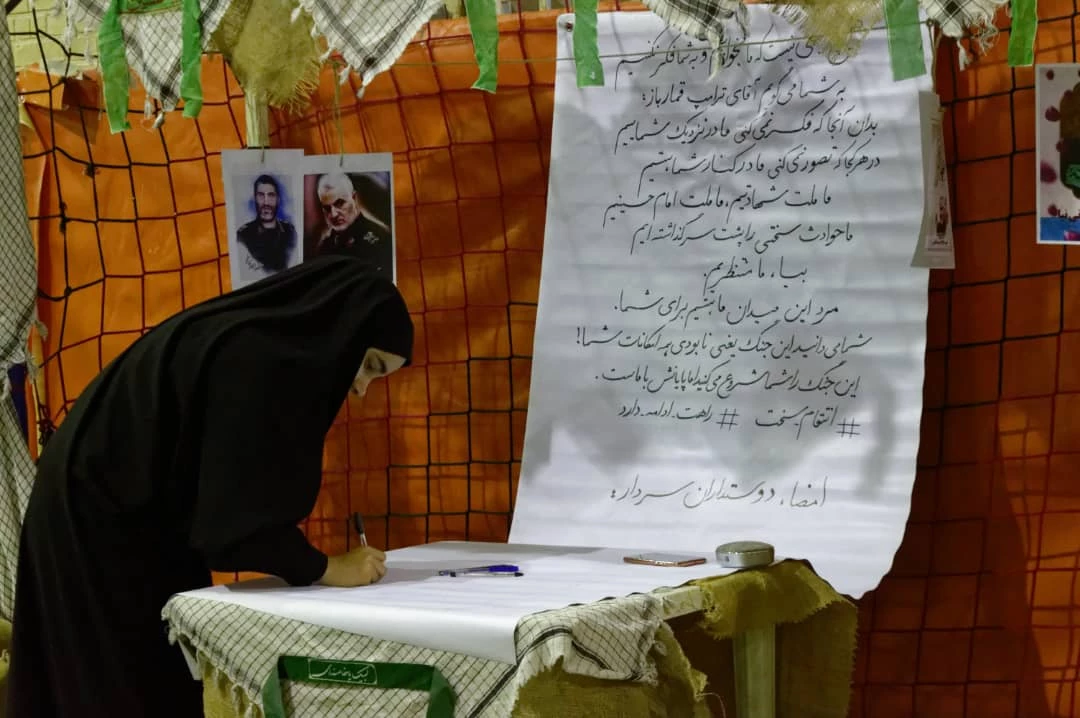 نیست که ما بخوابیم و به شما فکر نکنیم
به شما می گویم آقای ترامپ قمارباز:
بدان آنجا که فکر نمی کنی ما در نزدیک شماییم
در هر کجا که تصور نمی کنی ما در کنار شما هستیم
ما ملت شهادتیم، ما ملت امام حسینیم
ما حوادث سختی را پشت سر گذاشته ایم
بیا، ما منتظریم.
مرد این میدان ما هستیم برای شما.
شما می دانید این جنگ یعنی نابودی همه امکانات شما!
این جنگ را شما شروع می کنید اما پایانش با ماست.
#انتقام_سخت #راهت_ادامه_دارد
امضاء دوستداران سردار:
لبیک یا خامنه ای